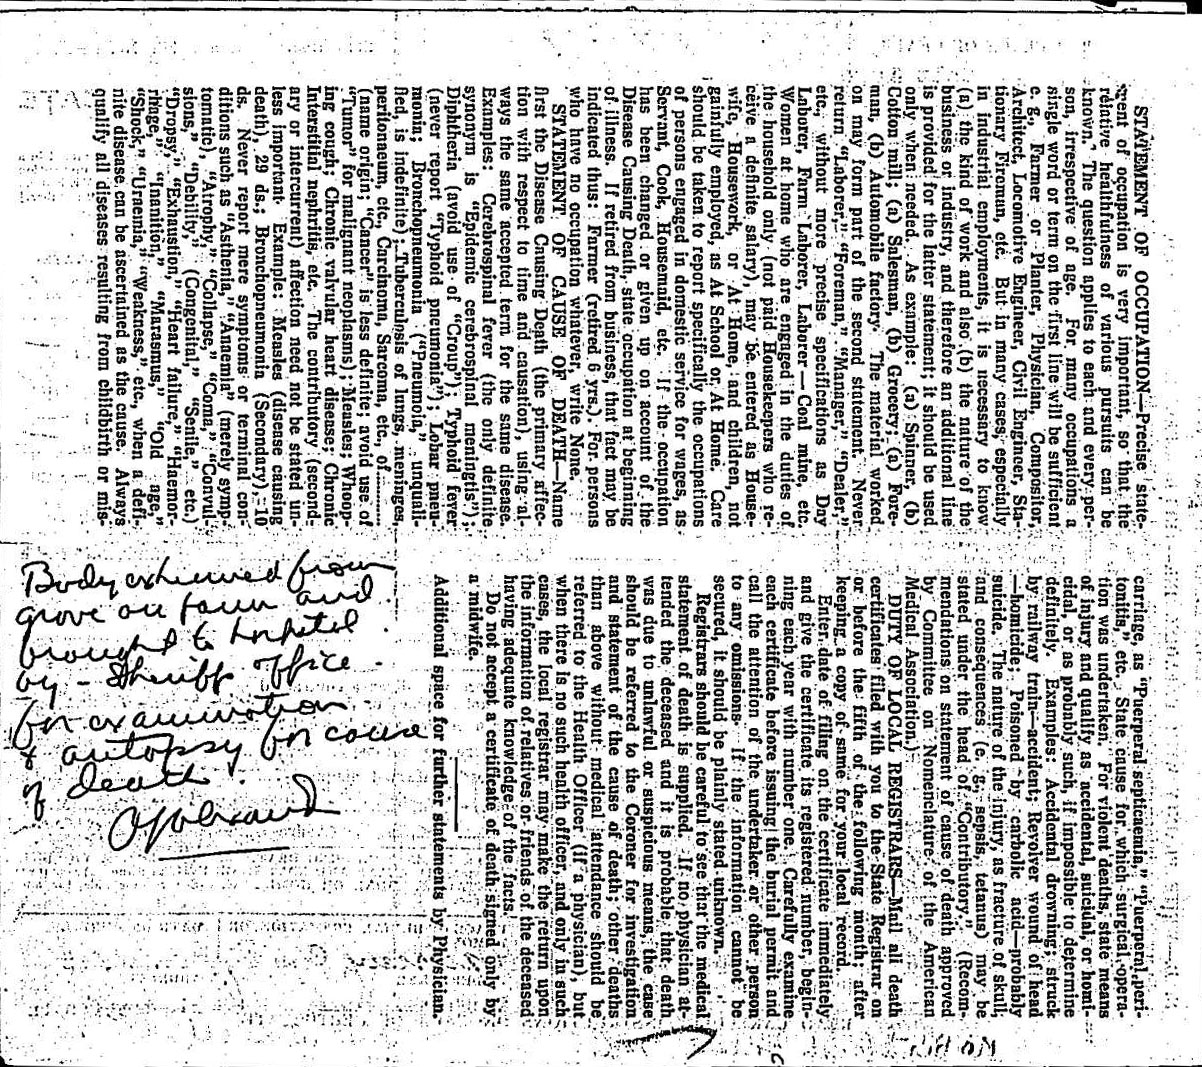 STATEMENT OF OCCUPATION—Precise state-
ment of occupation is very important, so that the
relative healthfulness of various pursuits can be
known. The question applies to each and every per-
son, irrespective of age. For many occupations a
single word or term on the first line will be sufficient
e. g., Farmer or Planter, Physician, Compositor,
Architect, Locomotive Engineer, Civil Engineer, Sta-
tionary Fireman, etc. But in many cases, especially
in industrial employments, it is necessary to know
(a) the kind of work and also (b) the nature of the
business or industry, and therefore an additional line
is provided for the latter statement; it should be used
only when needed. As example: (a) Spinner, (b)
Cotton mill; (a) Salesman, (b) Grocery; (a) Fore-
man, (b) Automobile factory. The material worked
on may form part of the second statement. Never
return "Laborer," "Foreman," "Manager," "Dealer,"
etc., without more precise specifications as Day
Laborer, Farm Laborer, Laborer—Coal mine, etc.
Women at home who are engaged in the duties of
the household only (not paid Housekeepers who re-
ceive a definite salary), may be entered as House-
wife, Housework, or At Home, and children, not
gainfully employed, as At School or At Home. Care
should be taken to report specifically the occupations
of persons engaged in domestic service for wages, as
Servant, Cook, Housemaid, etc. If the occupation
has been changed or given up on account of the
Disease Causing Death, state occupation at beginning
of illness. If retired from business, that fact may be
indicated thus: Farmer (retired 6 yrs.). For persons
who have no occupation whatever, write None.
STATEMENT OF CAUSE OF DEATH—Name
first the Disease Causing Death (the primary affec-
tion with respect to time and causation), using al-
ways the same accepted term for the same disease.
Examples: Cerebrospinal fever (the only definite
synonym is "Epidemic cerebrospinal meningtis");
Diphtheria (avoid use of "Croup"); Typhoid fever
(never report "Typhoid pneumonia"); Lobar pneu-
monia; Bronchopneumonia ("Pneumonia," unquali-
fied, is indefinite); Tuberculosis of lungs, meninges,
peritonaeum, etc., Carcinoma, Sarcoma, etc., of
(name origin; "Cancer" is less definite; avoid use of
"Tumor" for malignant neoplasms); Measles; Whoop-
ing cough; Chronic valvular heart disease; Chronic
Interstitial nephritis, etc. The contributory (second-
ary or intercurrent) affection need not be stated un-
less important. Example: Measles (disease causing
death), 29 ds.; Bronchopneumonia (Secondary), 10
ds. Never report mere symptoms or terminal con-
ditions such as "Asthenia," "Anaemia" (merely symp-
tomatic), "Atrophy," "Collapse," "Coma," "Convul-
sions," "Debility," (Congenital," "Senile," etc.)
"Dropsy," "Exhaustion," "Heart failure," "Haemor-
rhage," "Inanition," "Marasmus," "Old age,"
"Shock," "Uraemia," "Weakness," etc., when a defi-
nite disease can be ascertained as the cause. Always
qualify all diseases resulting from childbirth or mis-
carriage, as "Puerperal septicaemia," "Puerperal peri-
tonitis," etc. State cause for which surgical opera-
tion was undertaken. For violent deaths, state means
of injury and qualify as accidental, suicidal, or homi-
cidal, or as probably such, if impossible to determine
definitely. Examples: Accidental drowning; struck
by railway train—accident; Revolver wound of head
—homicide; Poisoned by carbolic acid—probably
suicide. The nature of the injury, as fracture of skull,
and consequences (e. g., sepsis, tetanus) may be
stated under the head of "Contributory." (Recom-
mendations on statement of cause of death approved
by Committee on Nomenclature of the American
Medical Association.)
DUTY OF LOCAL REGISTRARS—Mail all death
certificates filed with you to the State Registrar on
or before the fifth of the following month; after
keeping a copy of same for your local record.
Enter date of filing on the certificate immediately
and give the certificate its registered number, begin-
ning each year with number one. Carefully examine
each certificate before issuing the burial permit and
call the attention of the undertaker or other person
to any omissions. If the information cannot be
secured, it should be plainly stated unknown.
Registrars should be careful to see that the medical
statement of death is supplied. If no physician at-
tended the deceased and it is probable that death
was due to unlawful or suspicious means, the case
should be referred to the Coroner for investigation
and statement of the cause of death; other deaths
than above without medical attendance should be
referred to the Health Officer (if a physician), but
when there is no such health officer, and only in such
cases, the local registrar may make the return upon
the information of relatives or friends of the deceased
having adequate knowledge of the facts.
Do not accept a certificate of death signed only by
a midwife.
Additional space for further statements by Physician.
Body exhumed from
grove on farm and
brought to hospital
by - Sheriff office
for examination
& autopsy for cause
of death.